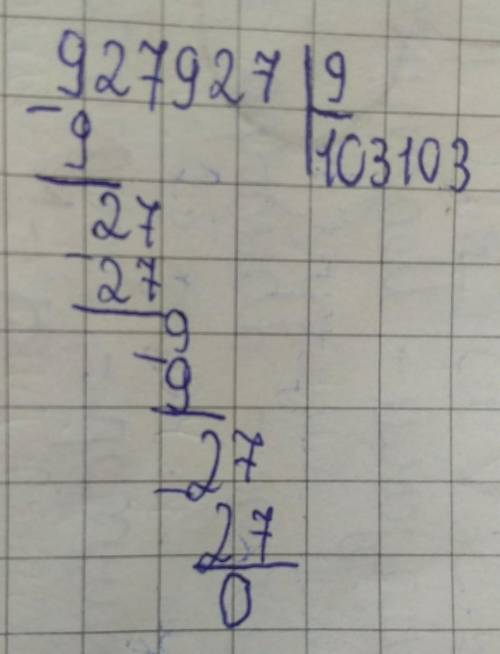 927927 | 9
- 9 103103
27
- 27
9
- 9
27
- 27
0